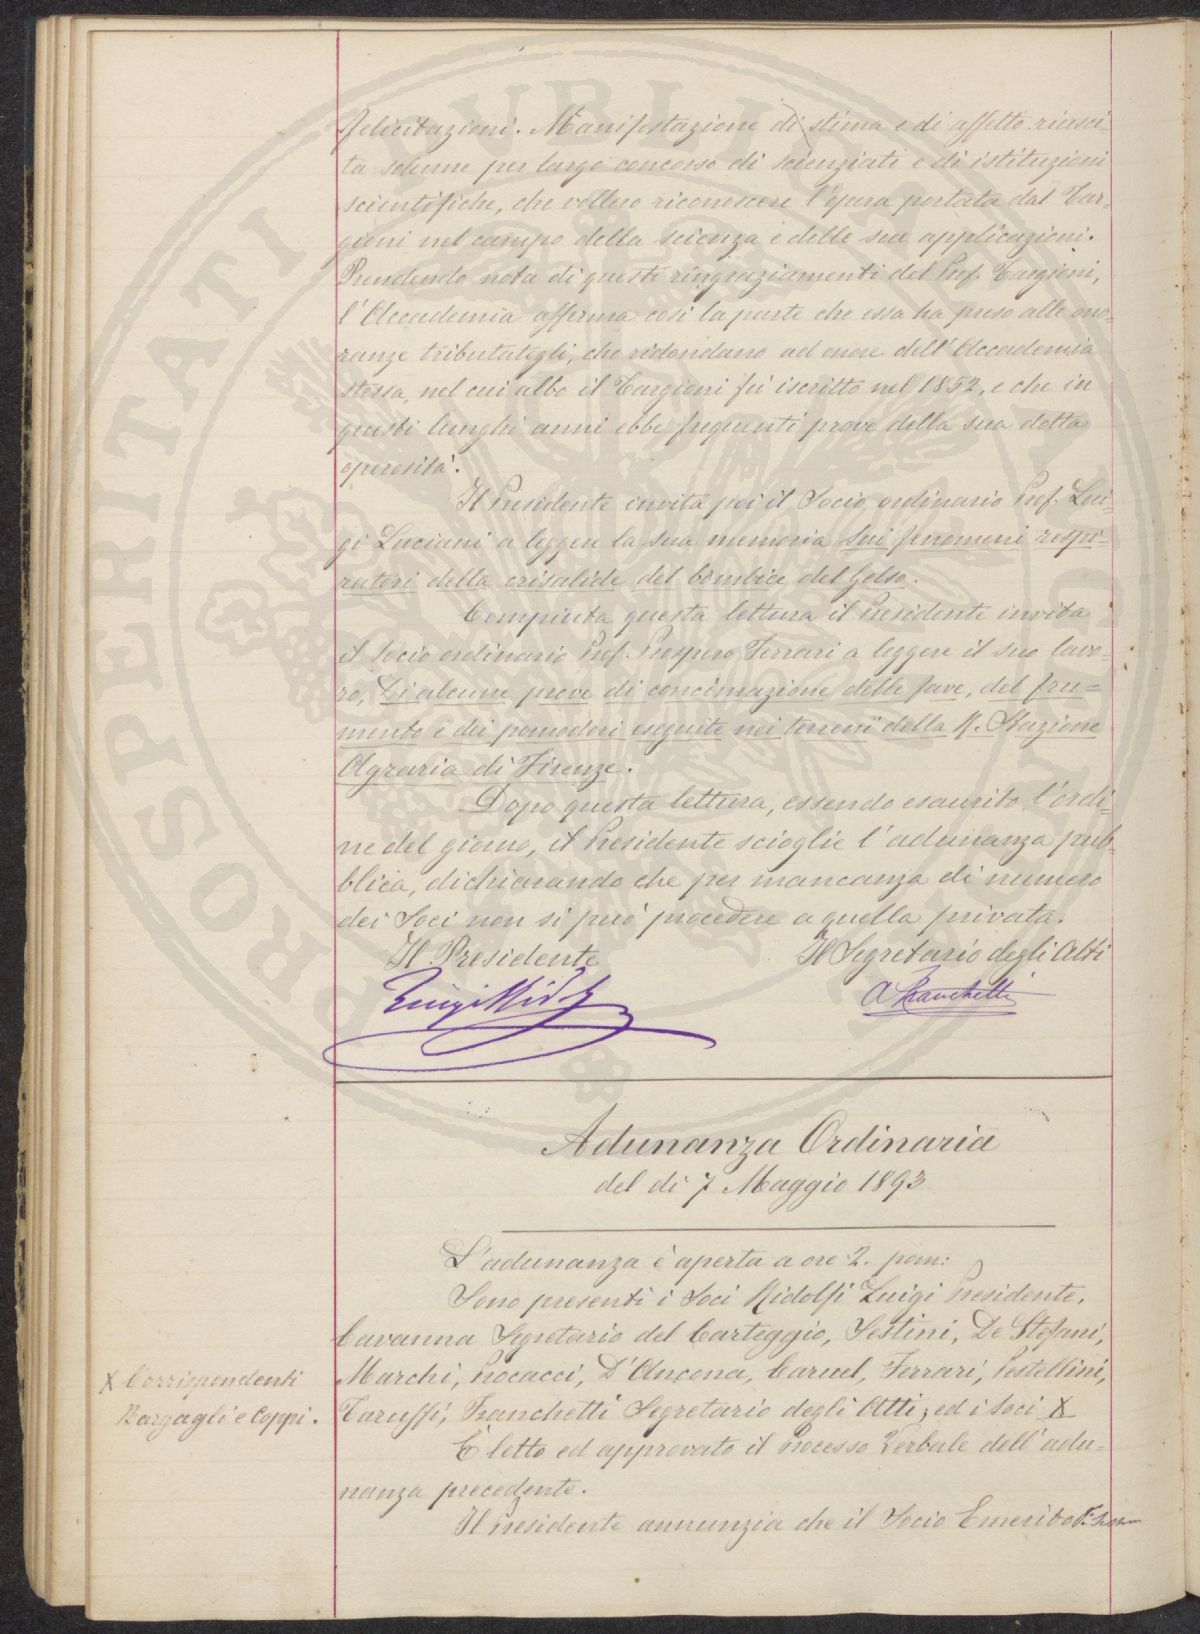 felicitazioni. Manifestazione di stima e di affetto riusci-
ta solenne per largo concorso di scienziati e di istituzioni
scientifiche, che vollero riconoscere l'opera portata dal Tar-
gioni nel campo della scienza e delle sue applicazioni.
Prendendo nota di questi ringraziamenti del Prof. Targioni,
l'Accademia afferma così la parte che essa ha preso alle ono-
ranze tributategli, che ridondano ad onore dell'Accademia
stessa, nel cui albo il Targioni fù iscritto nel 1852, e che in
questi lunghi anni ebbe frequenti prove della sua dotta
operosità.
Il Presidente invita poi il Socio ordinario Prof. Lui-
gi Luciani a leggere la sua memoria sui fenomeni respi-
ratori della crisalide del bombice del Gelso.
Compiuta questa lettura il Presidente invita
il Socio ordinario Prof. Prospero Ferrari a leggere il suo lavo-
ro, Di alcune prove di concimazione delle fave, del fru=
mento e dei pomodori eseguite nei terreni della R. Stazione
Agraria di Firenze.
Dopo questa lettura, essendo esaurito l'ordi-
ne del giorno, il Presidente scioglie l'adunanza pub-
blica, dichiarando che per mancanza di numero
dei Soci non si può procedere a quella privata.
Il Presidente Il Segretario degli Atti
Luigi Ridolfi A Franchetti
Adunanza Ordinaria
del dì 7 Maggio 1893
L'adunanza è aperta a ore 2. pom:
Sono presenti i Soci Ridolfi Luigi Presidente,
Cavanna Segretario del Carteggio, Sestini, De Stefani,
Marchi, Procacci, D'Ancona, Caruel, Ferrari, Pestellini,
Taruffi, Franchetti Segretario degli Atti; ed i Soci X
X Corrispondenti
Bargagli e Coppi.
È letto ed approvato il Processo Verbale dell'adu-
nanza precedente.
Il Presidente annunzia che il Socio Emerito
PUBLICAE
PROSPERITATI